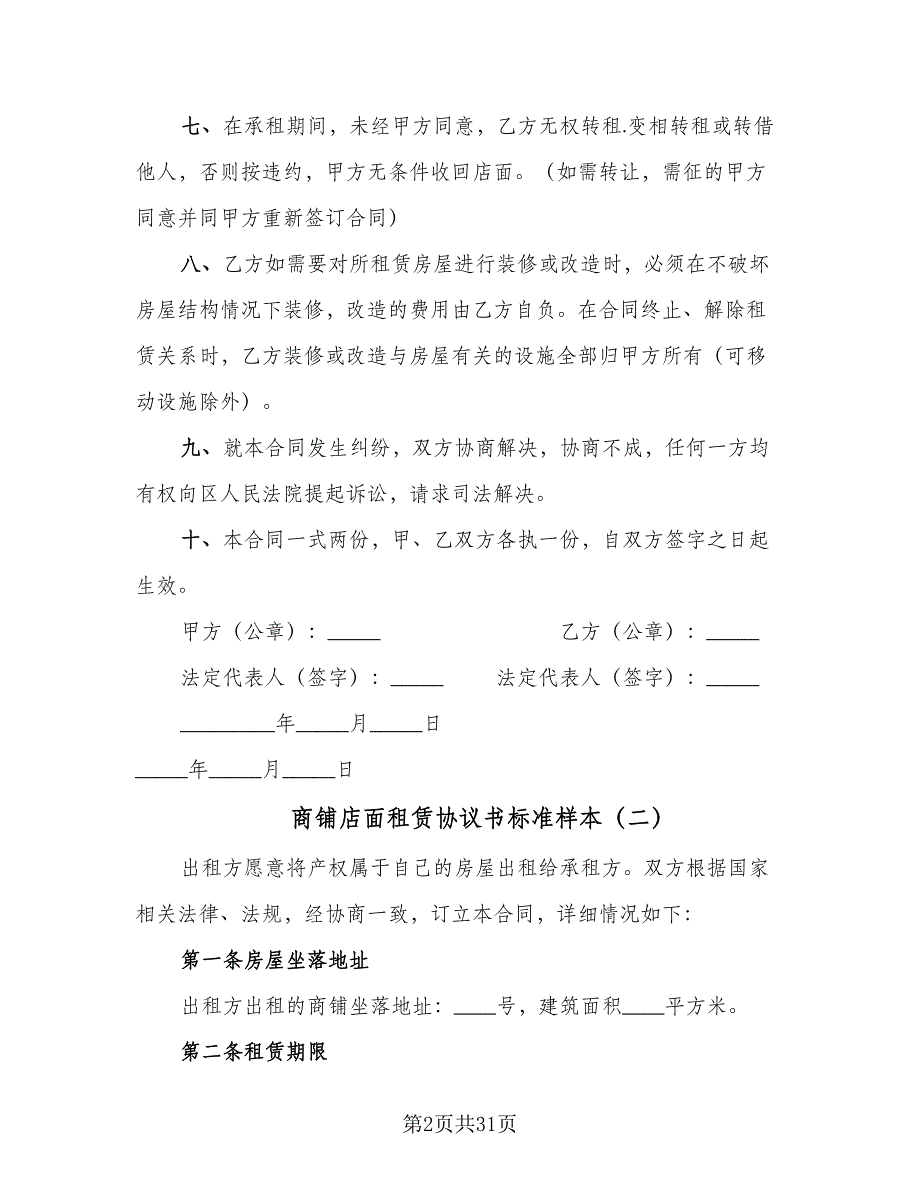 七、在承租期间，未经甲方同意，乙方无权转租.变相转租或转借
他人，否则按违约，甲方无条件收回店面。（如需转让，需征的甲方
同意并同甲方重新签订合同）
八、乙方如需要对所租赁房屋进行装修或改造时，必须在不破坏
房屋结构情况下装修，改造的费用由乙方自负。在合同终止、解除租
赁关系时，乙方装修或改造与房屋有关的设施全部归甲方所有（可移
动设施除外）。
九、就本合同发生纠纷，双方协商解决，协商不成，任何一方均
有权向区人民法院提起诉讼，请求司法解决。
十、本合同一式两份，甲、乙双方各执一份，自双方签字之日起
生效。
甲方（公章）：_____ 乙方（公章）：_____
法定代表人（签字）：_____ 法定代表人（签字）：_____
_________年_____月_____日
_____年_____月_____日
商铺店面租赁协议书标准样本（二）
出租方愿意将产权属于自己的房屋出租给承租方。双方根据国家
相关法律、法规，经协商一致，订立本合同，详细情况如下：
第一条房屋坐落地址
出租方出租的商铺坐落地址：____号，建筑面积____平方米。
第二条租赁期限
第2页共31页